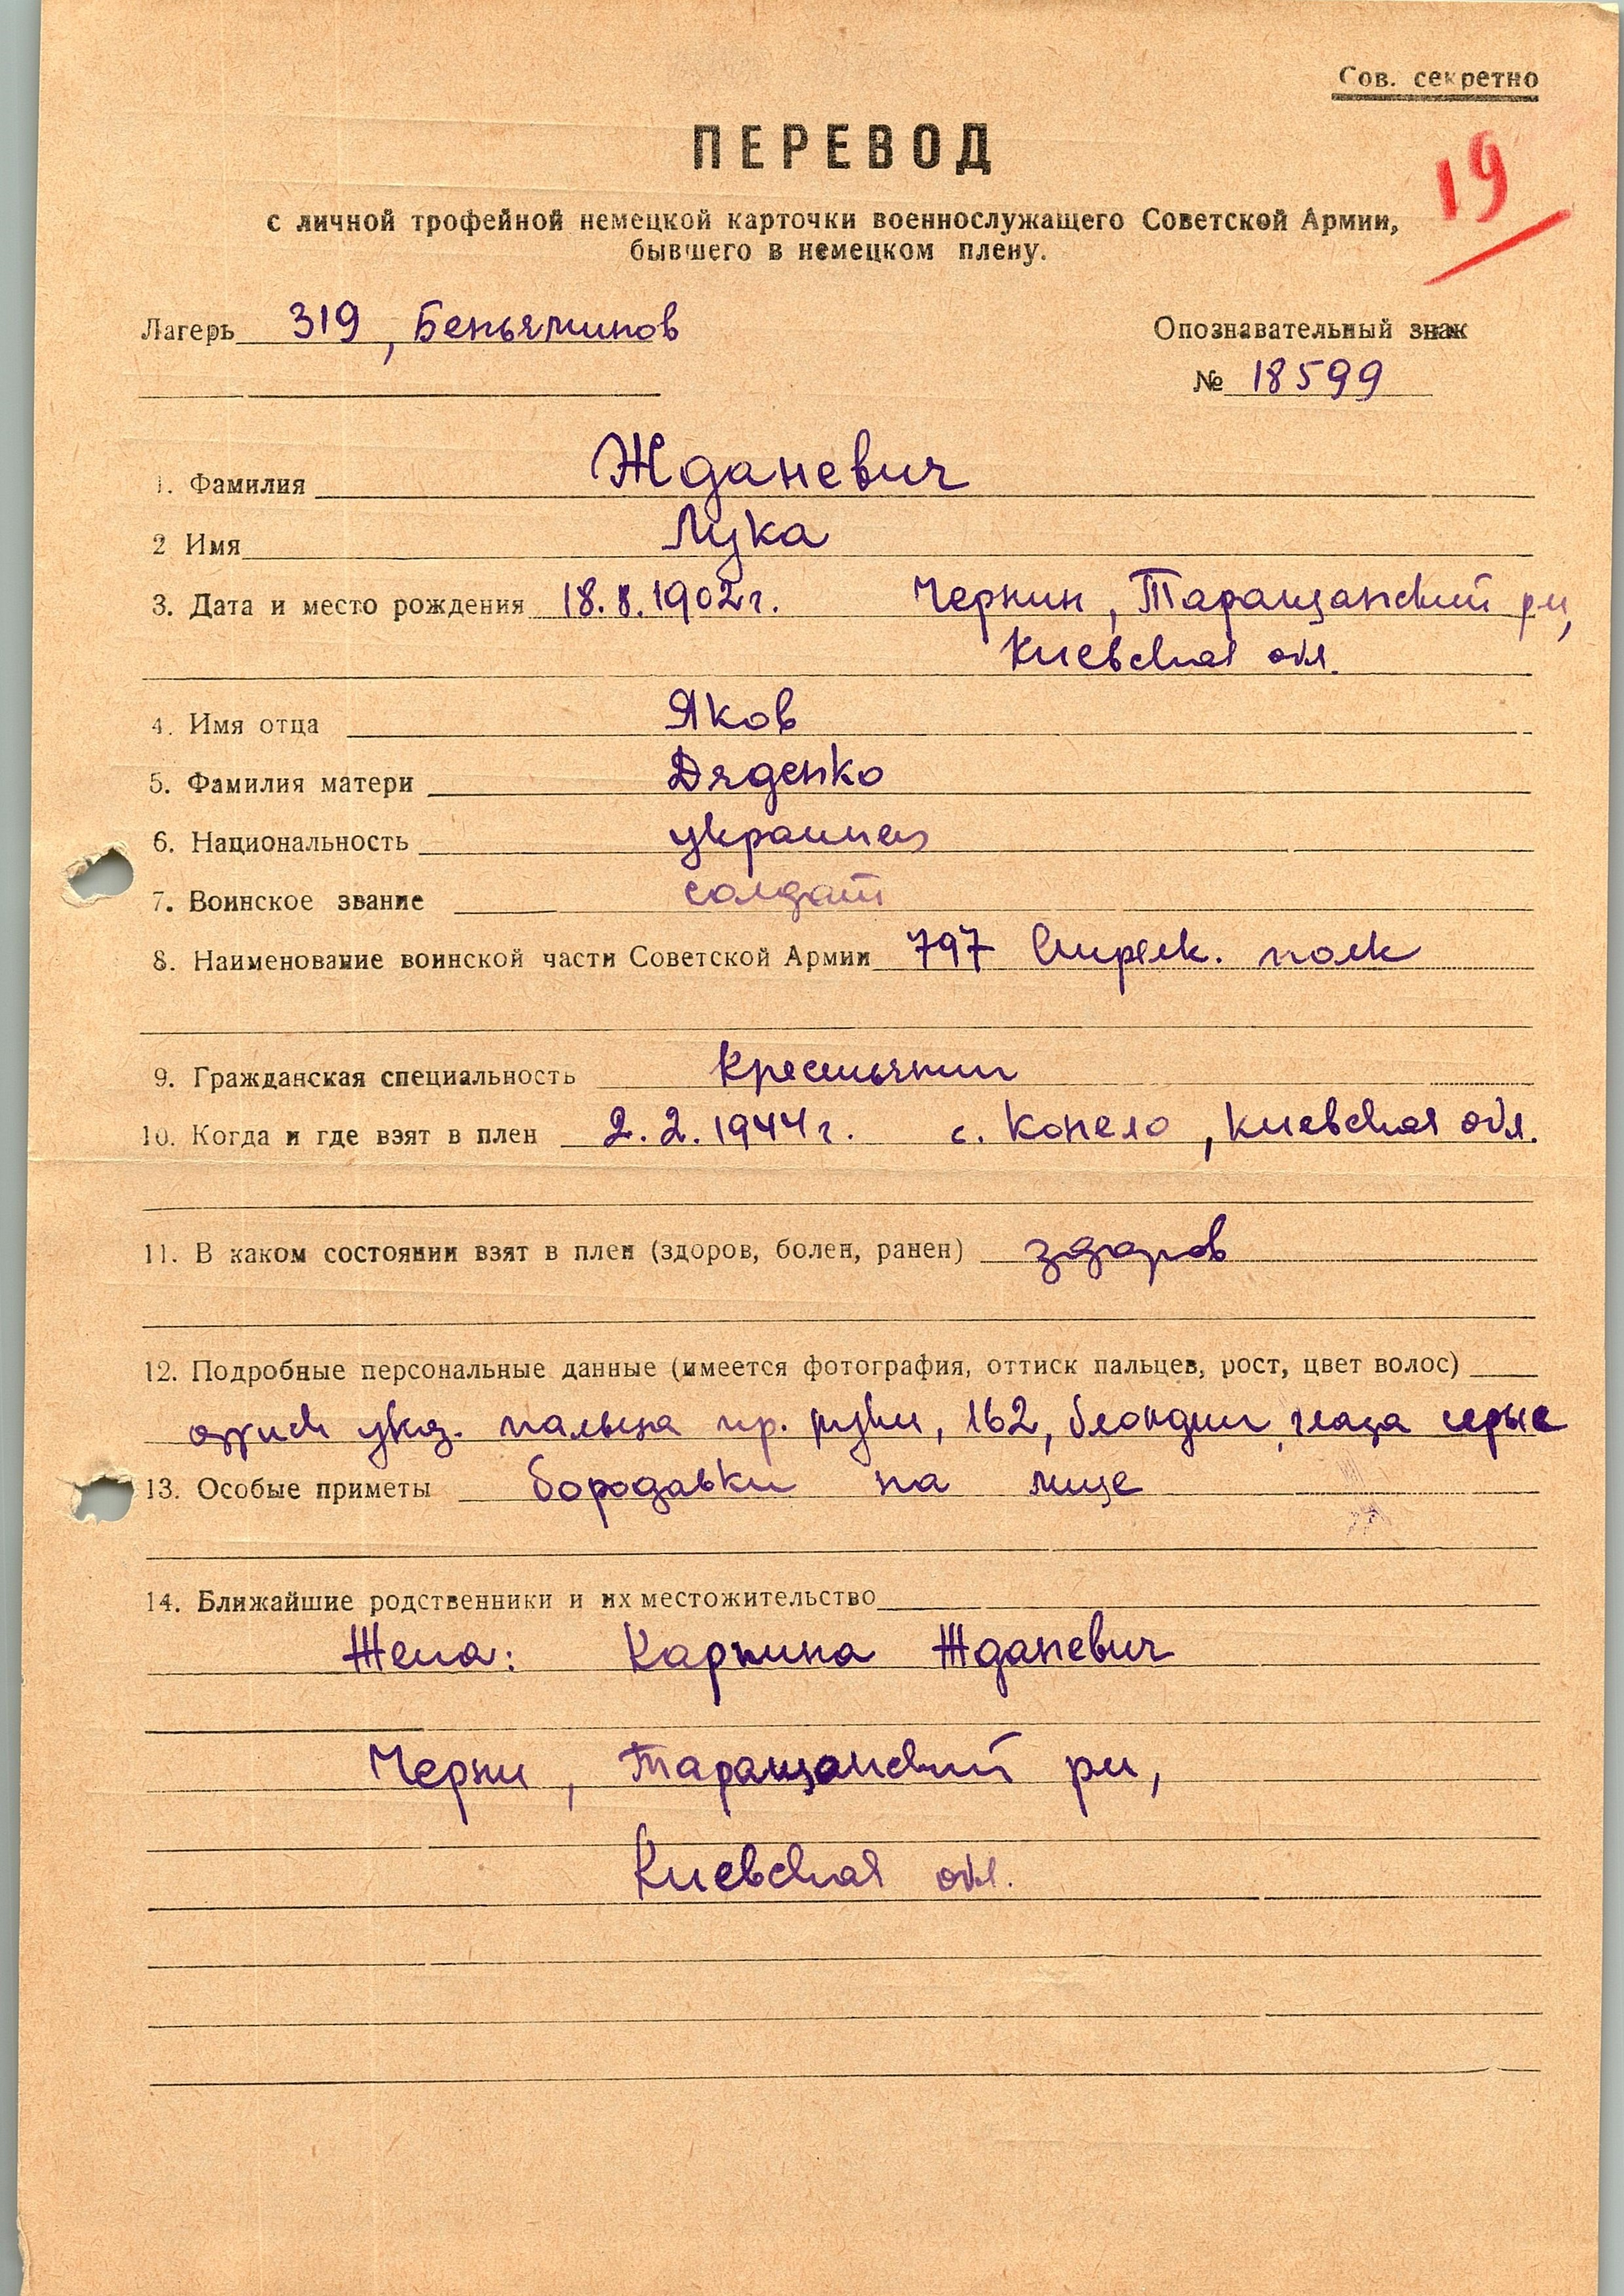 Сов. секретно
19
ПЕРЕВОД
с личной трофейной немецкой карточки военнослужащего Советской Армии,
бывшего в немецком плену.
Лагерь 319, Беньяминов
Опознавательный знак
№ 18599
1. Фамилия Жданевич
2 Имя Лука
3. Дата и место рождения 18.8.1902г. Чернин, Таращанский р-н,
Киевская обл.
4. Имя отца Яков
5. Фамилия матери Дяденко
6. Национальность украинец
7. Воинское звание солдат
8. Наименование воинской части Советской Армии 797 Стрелк. полк
9. Гражданская специальность крестьянин
10. Когда и где взят в плен 2.2.1944г. с. Конело, Киевская обл.
11. В каком состоянии взят в плен (здоров, болен, ранен) здоров
12. Подробные персональные данные (имеется фотография, оттиск пальцев, рост, цвет волос)
оттиск указ. пальца пр. руки, 162, блондин, глаза серые
13. Особые приметы бородавки на лице
14. Ближайшие родственники и их местожительство
Жена: Жданевич
Черни, Таращанский р-н,
Киевская обл.